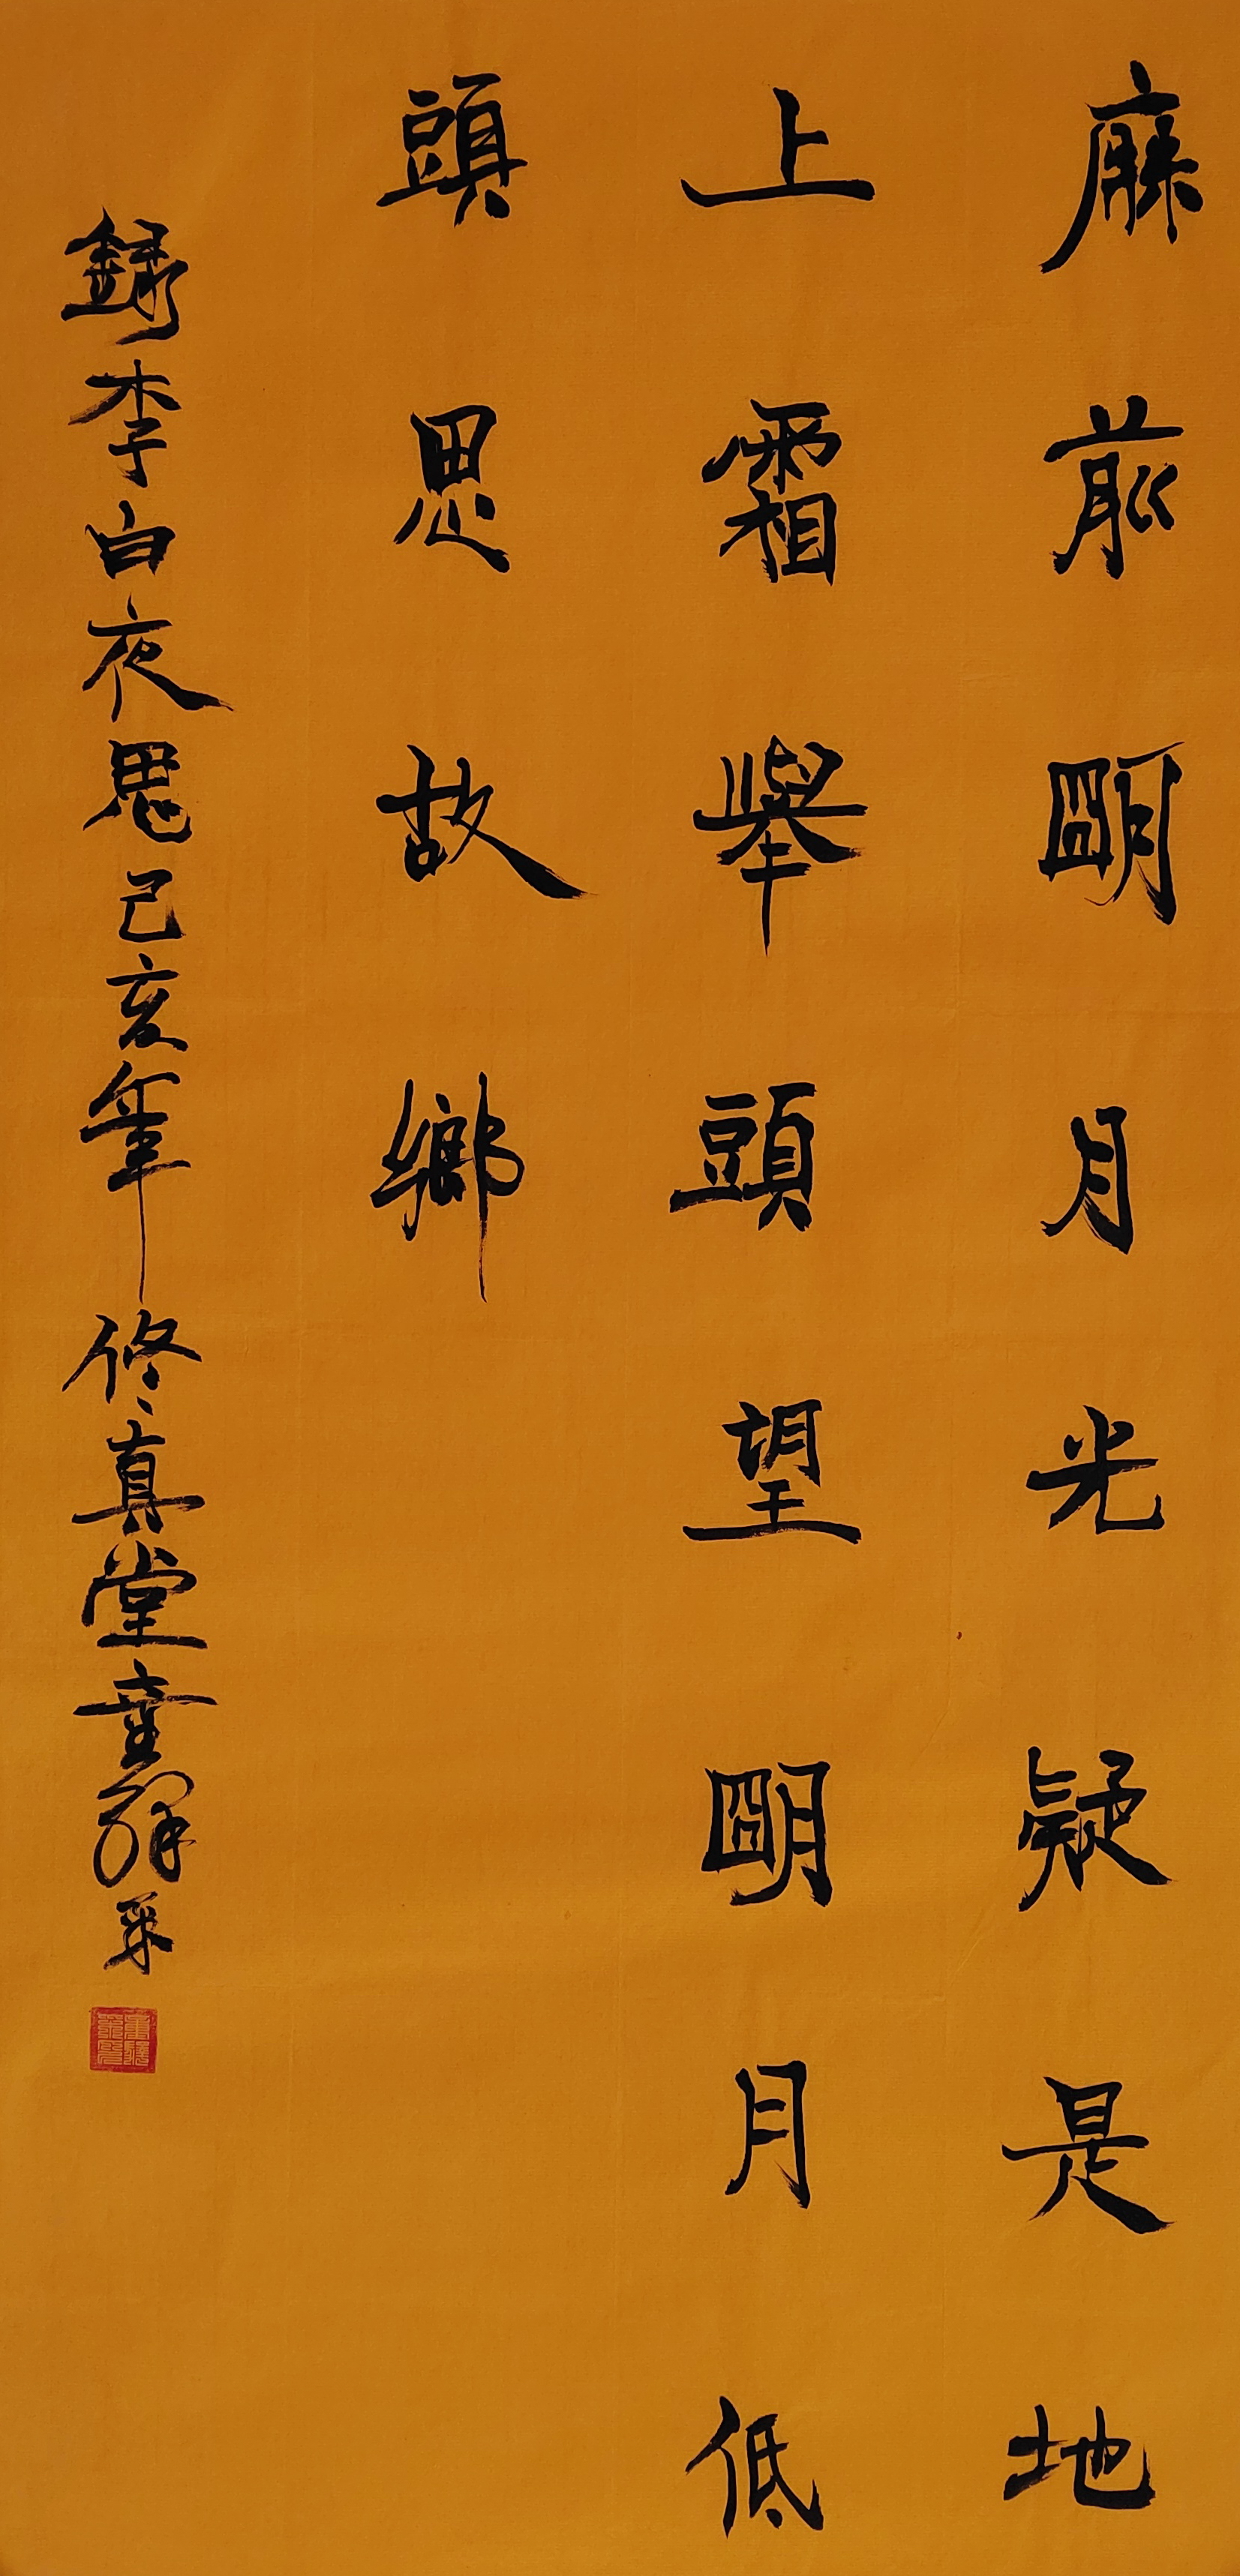 牀前朙月光疑是地
上霜舉頭望朙月低
頭思故鄉
錄李白夜思己亥年修真堂童